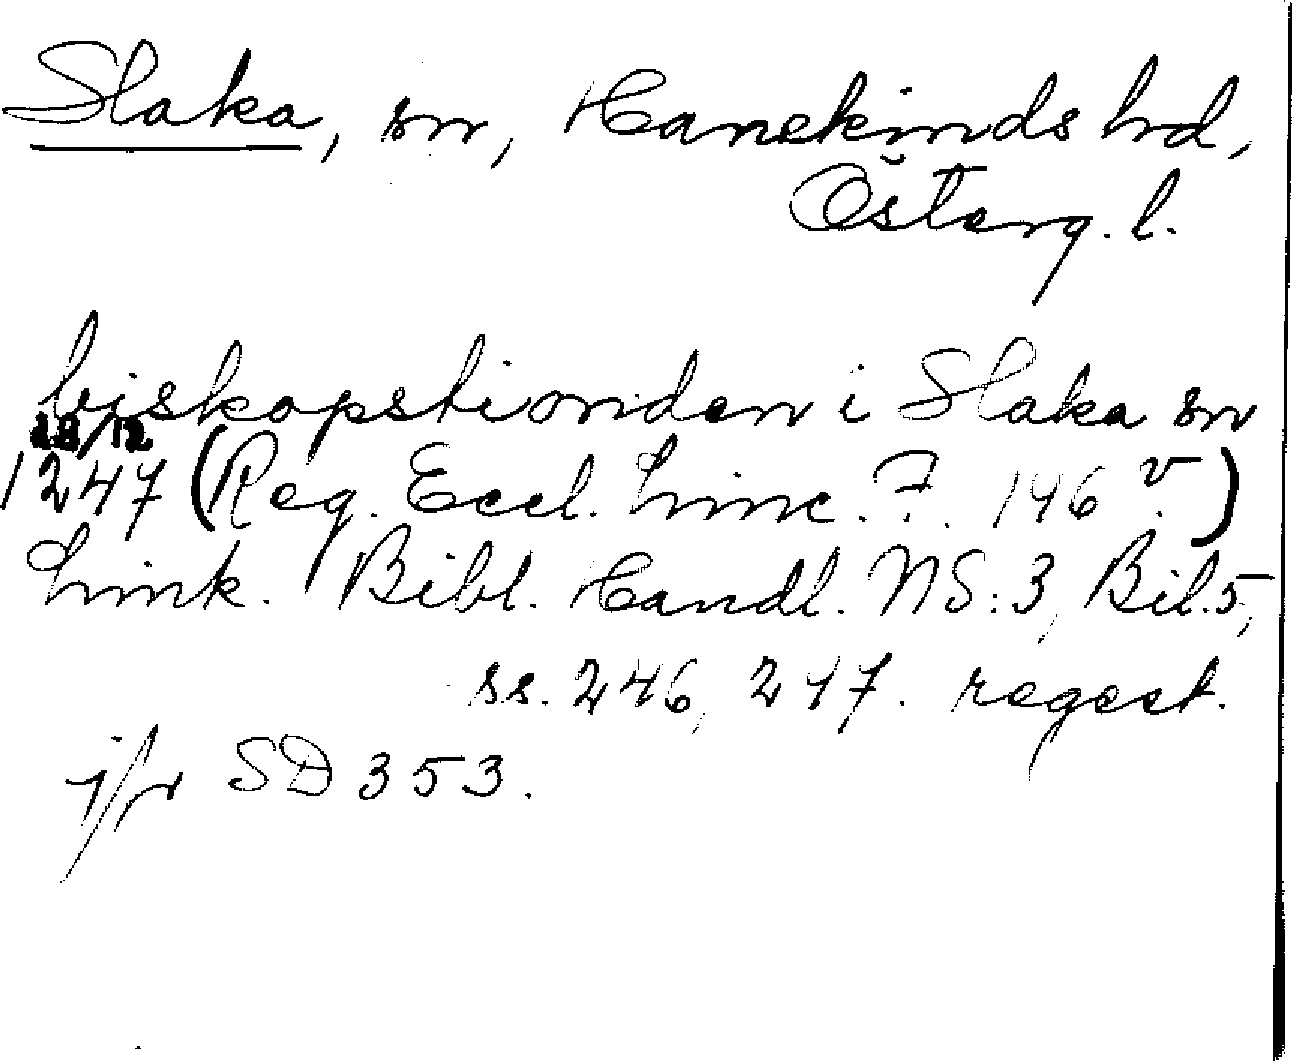 Slaka, sn, Hanekinds hd,
Österg. l.
biskopstionden i Slaka sn
1247 (Reg. Eccl. Linc. F. 146 v.)
Link. Bibl. Handl. NS: 3, Bil. 5,
ss. 246, 247. regest.
jfr SD 353.